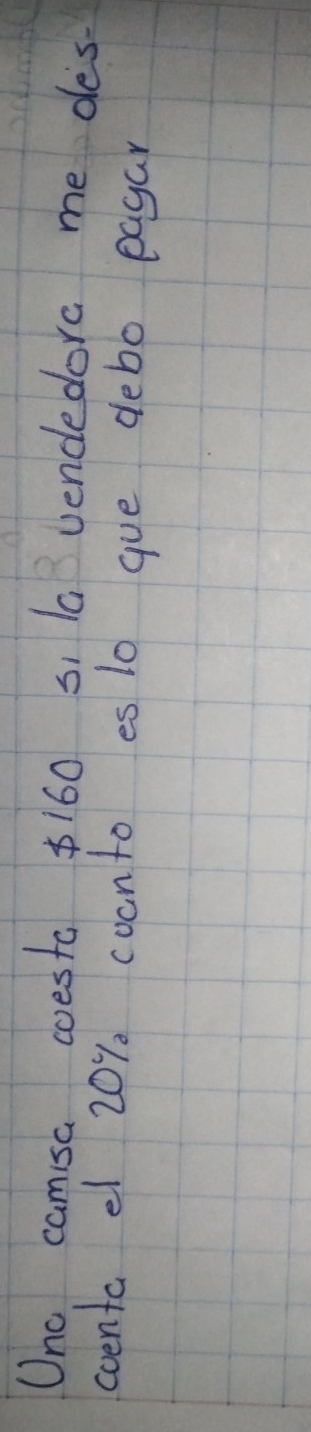 Una camisa cuesta $160 si la vendedora me des-
cuenta el 20% cuanto es lo que debo pagar